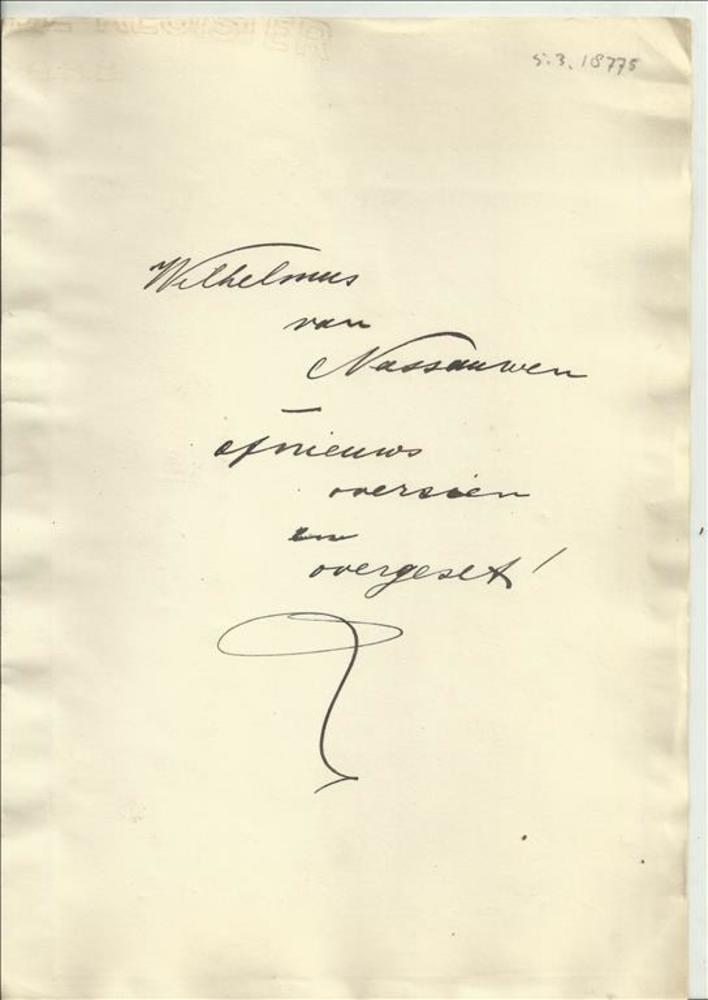 S.3.18775
Wilhelmus
van
Nassauwen
—
ofnieuws
oversien
en
overgeset!